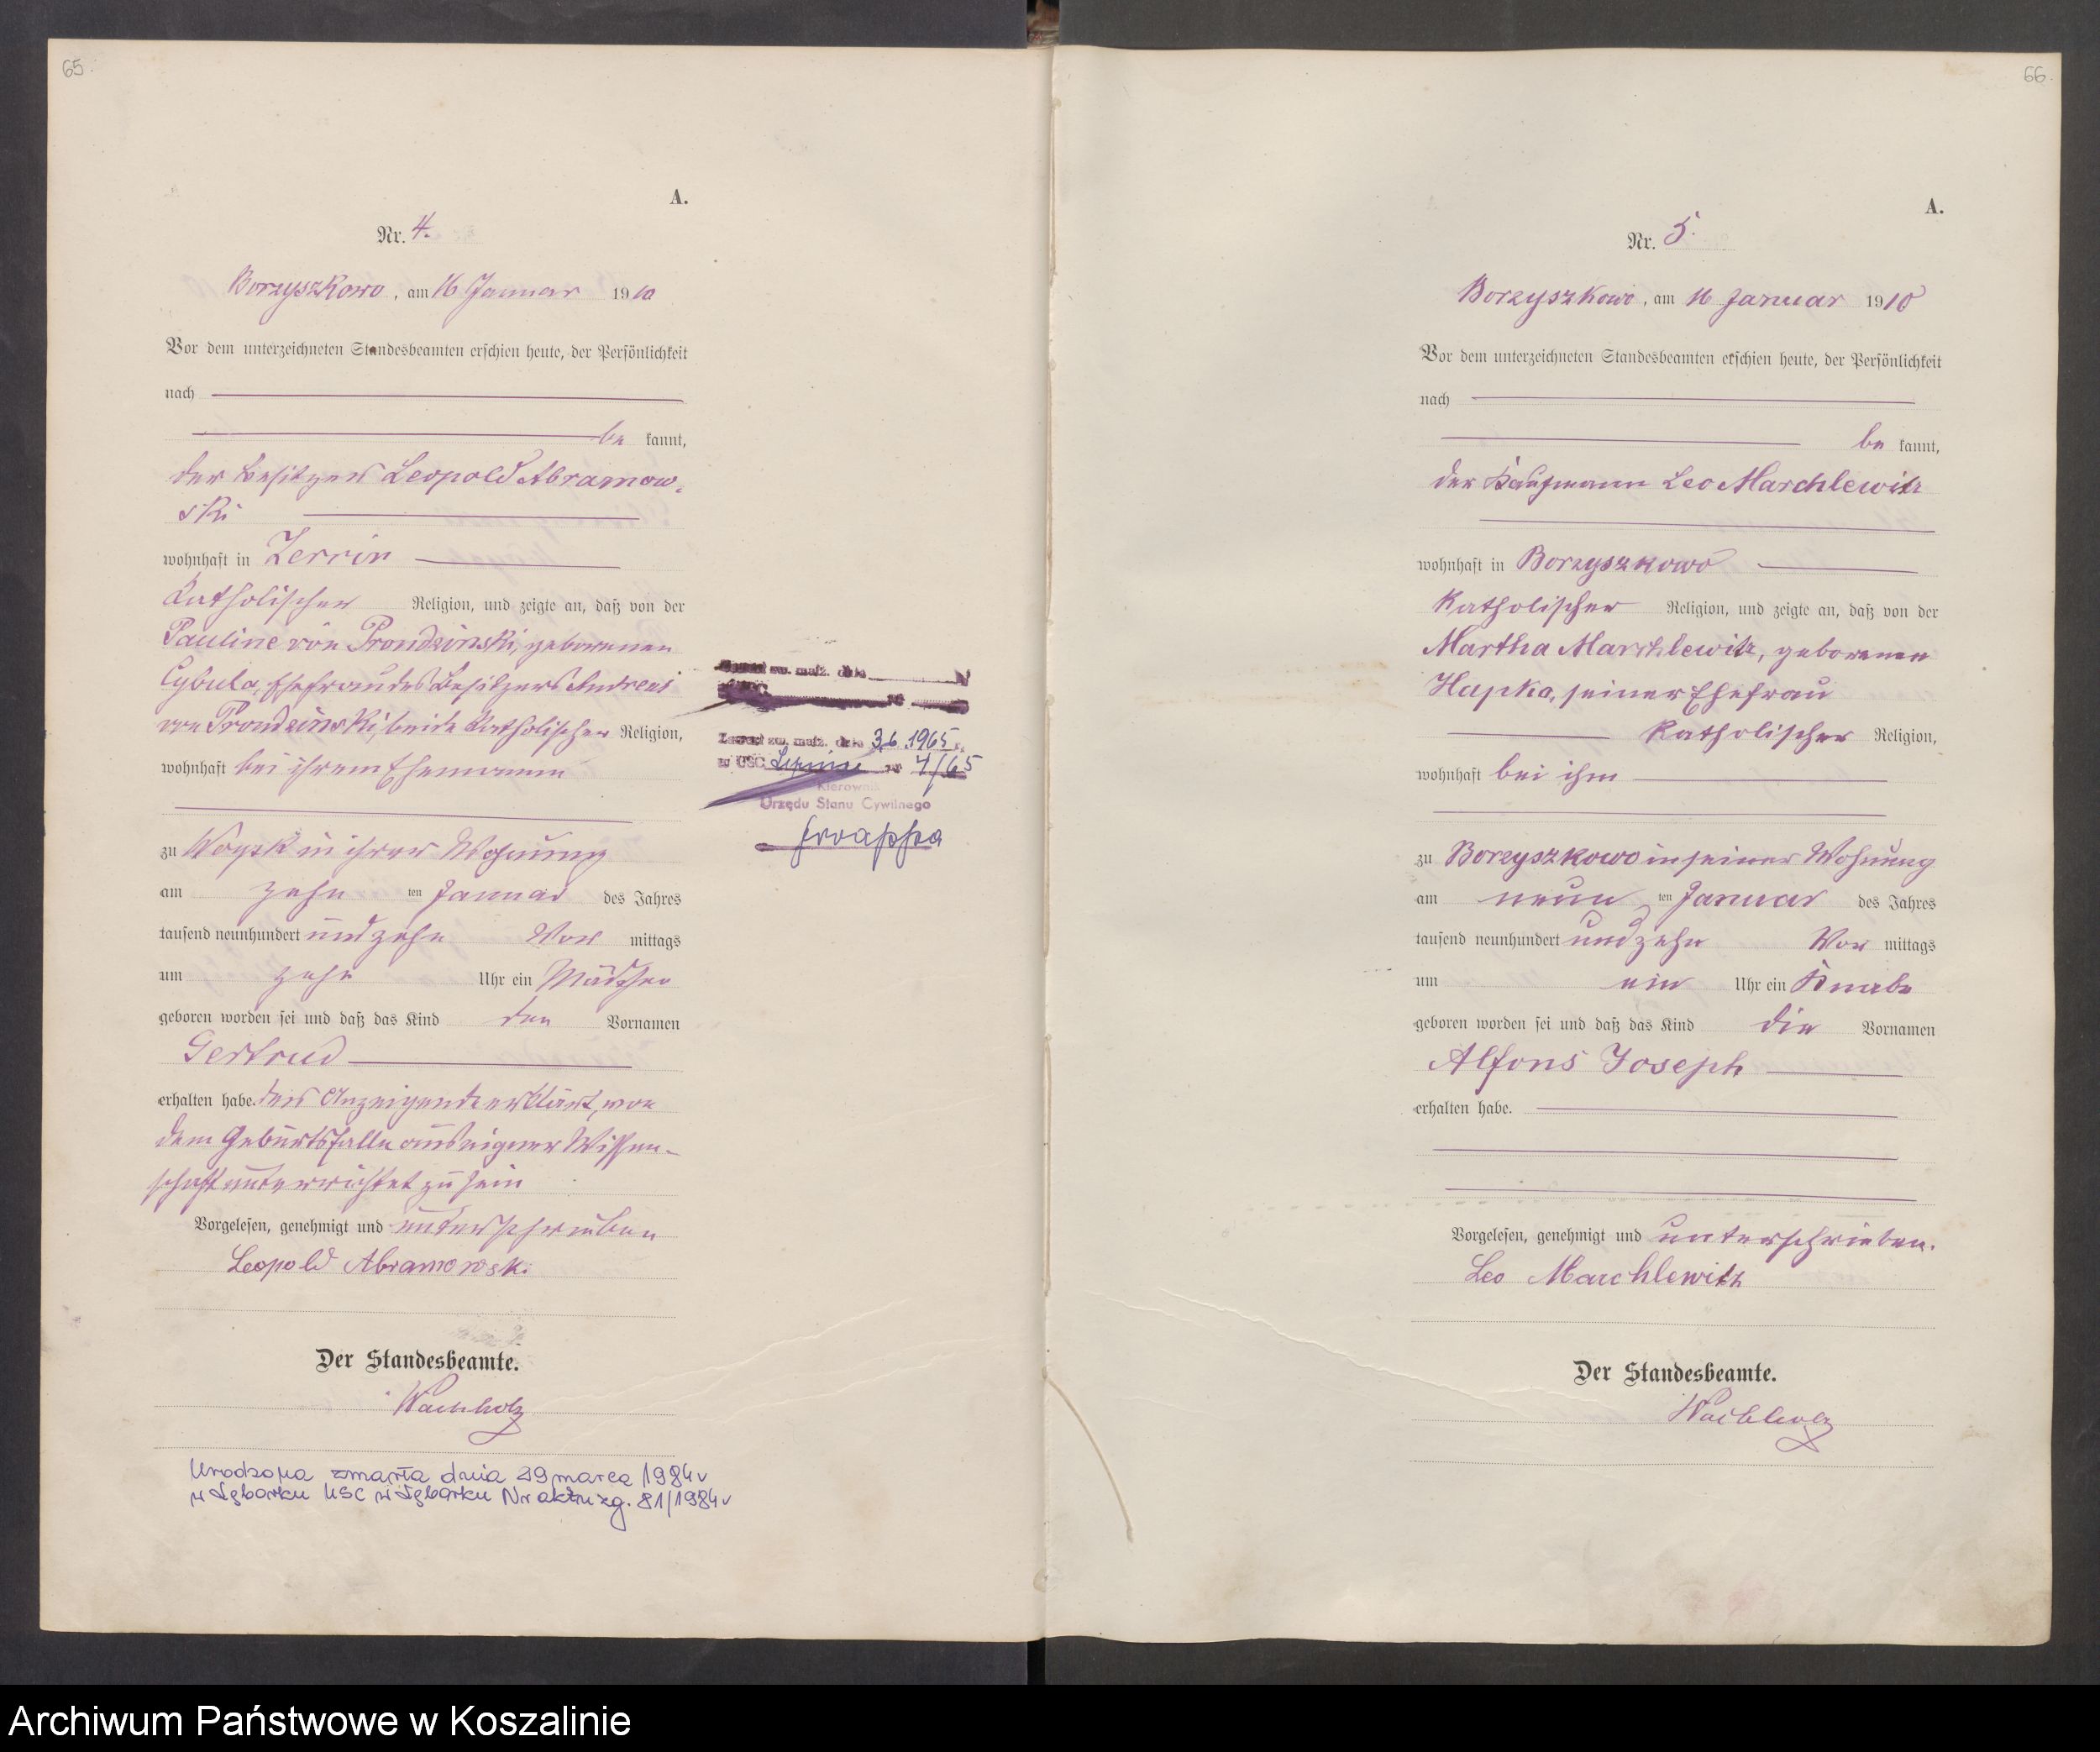 65.
A.
Nr. 4.
Borzyszkowo, am 16 Januar 1910
Vor dem unterzeichneten Standesbeamten erschien heute, der Persönlichkeit
nach
be kannt,
der Besitzer Leopold Abramow-
ski
wohnhaft in Zerrin
katholischer Religion, und zeigte an, daß von der
Pauline von Prondzinski, geborenen
Cybula, Ehefrau des Besitzers Andreas
von Prondzinski, beide katholischer Religion,
wohnhaft bei ihrem Ehemanne
zu Woysk in ihrer Wohnung
am zehn ten Januar des Jahres
tausend neunhundert und zehn Vor mittags
um zehn Uhr ein Mädchen
geboren worden sei und daß das Kind den Vornamen
Gertrud
erhalten habe. Der Anzeigende erklärt, von
dem Geburtsfalle aus eigener Wissen-
schaft unterrichtet zu sein
Vorgelesen, genehmigt und unterschrieben
Leopold Abramowski
Der Standesbeamte.
Wachholz
Urodzona zmarła dnia 29 marca 1984 r
w Lęborku USC w Lęborku Nr aktu zg. 81/1984 r
zw. małż. dnia
Zawarł zw. małż. dnia 3.6.1965 r.
w USC nr 7/65
Kierownik
Urzędu Stanu Cywilnego
66.
A.
Nr. 5.
Borzyszkowo, am 16 Januar 1910
Vor dem unterzeichneten Standesbeamten erschien heute, der Persönlichkeit
nach
be kannt,
der Kaufmann Leo Marchlewitz
wohnhaft in Borzyszkowo
katholischer Religion, und zeigte an, daß von der
Martha Marchlewitz, geborenen
Hapka, seiner Ehefrau
katholischer Religion,
wohnhaft bei ihm
zu Borzyszkowo in seiner Wohnung
am neun ten Januar des Jahres
tausend neunhundert und zehn Vor mittags
um ein Uhr ein Knabe
geboren worden sei und daß das Kind die Vornamen
Alfons Joseph
erhalten habe.
Vorgelesen, genehmigt und unterschrieben.
Leo Marchlewitz
Der Standesbeamte.
Wachholz
Archiwum Państwowe w Koszalinie